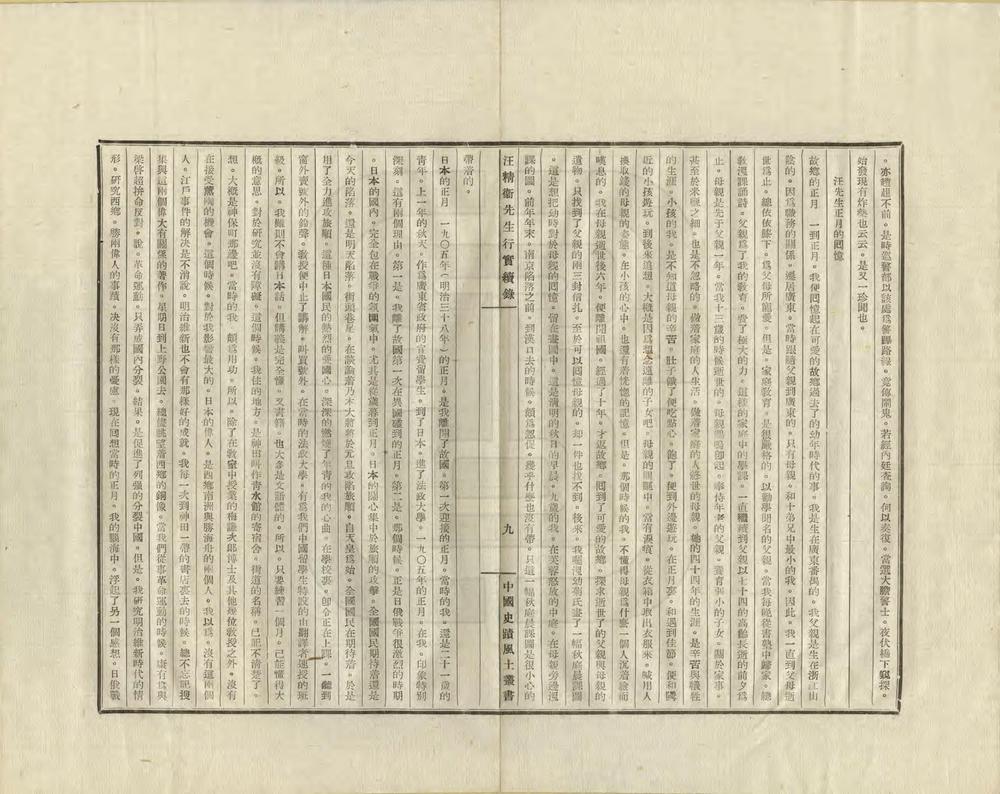 。亦禮趨不前。是時電警部以該處爲警蹕路線。竟傳鬧鬼。若經內廷査詢。何以奏復。當選大膽警士。夜伏橋下窺探。
始發現有炸藥也云云。是又一珍聞也。
汪先生正月的囘憶
故鄉的正月 一到正月。我便囘憶起在可愛的故鄉過去了的幼年時代的事。我是生在廣東番禺的。我父親是生在浙江山
陰的。因爲職務的關係。遷居廣東。當時跟隨父親到廣東的。只有母親。和十弟兄中最小的我。因此。我一直到父母逝
世爲止。總依依膝下。爲父母所寵愛。但是。家庭敎育。是很嚴格的。以勤學聞名的父親。當我每晚從書塾歸家。總
敎我課誦詩。父親爲了我的敎育。費了極大的力。這樣的家庭中的學課。一直繼續到父親以七十四的高齡長逝的前夕爲
止。母親是先于父親一年。當我十三歲的時候逝世的。母親雞鳴卽起。奉侍年老的父親。養育弱小的子女。關於家事。
甚至於米鹽之細。也是不忽略的。做着家庭的人生活。做着家庭的人終世的母親。她的四十四年的生涯。是辛苦與犧牲
的生涯。小孩的我。是不知道母親的辛苦。肚子餓了便吃點心。飽了。便到外邊遊玩。在正月裏。和遇到佳節。便和隣
近的小孩遊玩。到後來追想。大概是因爲想念遠離的子女吧。母親的眼眶中。當有淚痕。從衣箱中取出衣服來。喊用人
換取錢的母親的姿態。在小孩的心中。也還有着恍惚的記憶。但是。那個時候的我。不懂得母親爲什麼一個人沉着臉而
嘆息的。我在母親逝世後六年。便離開祖國。經過了十年。才返故鄉。囘到了可愛的故鄉。探求逝世了的父親與母親的
遺物。只找到了父親的兩三封信扎。至於可以囘憶母親的。却一件也找不到。後來。我囑溫幼菊氏畫了一幅秋庭晨課圖
。這是想把幼時對於母親的囘憶。留在畫圖中。這是淸明的秋日的早晨。九歲的我。在芙蓉怒放的中庭。在母親旁邊溫
課的圖。前年年末。南京陷落之前。到漢口去的時候。頗爲怱促。幾乎什麼也沒有帶。只這一幅秋庭晨課圖是很小心的
汪精衞先生行實續錄
九
中國史蹟風土叢書
帶着的。
日本的正月 一九〇五年（明治三十八年）的正月。是我離開了故國。第一次迎接的正月。當時的我。還是二十一歲的
靑年。上一年的秋天。作爲廣東省政府的官費留學生。到了日本。進了法政大學。一九〇五年的正月。在我。印象特別
深刻。這有兩個理由。第一是。我離了故國第一次在異國碰到的正月。第二是。那個時候。正是日俄戰爭很激烈的時期
。日本的國內。完全包在戰爭的氛圍氣中。尤其是從歲暮到正月。日本的關心集中於旅順的攻擊。全國國民期待着還是
今天的陷落。還是明天陷落。街頭巷尾。在談論着乃木大將將於元旦攻陷旅順。自天皇爲始。全國國民在期待着。於是
用了全力進攻旅順。這種日本國民的熱烈的愛國心。深深的激動了年靑的我的心曲。在學校裏。卽令正在上課。一聽到
窗外賣號外的鈴聲。敎授便中止了講解。叫買號外。在當時的法政大學。有爲我們中國留學生特設的由翻譯者速授的班
級。所以。我雖則不會講日本話。但講義是的全懂。又書籍。也大多是文語體的。所以。只要練習一個月。已能懂得
槪的意思。對於研究並沒有障礙。這個時候。我住的地方。是神田叫作靑水館的寄宿舍。街道的名稱。已記不淸楚了。
想。大槪是神保町那邊吧。當時的我。頗爲用功。所以。除了在敎室中授業的梅謙次郎博士及其他幾位敎授之外。沒有
在接受薰陶的機會。這個時候。對於我影響最大的。日本的偉人。是西鄉南洲與勝海舟的兩個人。我以爲。沒有這兩個
人。江戶事件的解決是不消說。明治維新也不會有那樣好的成就。我每一次到神田一帶的書店裏去的時候。總不忘記搜
集與這兩個偉大大有關係的著作。星期日到上野公園去。總儘眺望着西鄉的銅像。當我們從事革命運動的時候。康有爲與
梁啓超拚命反對。說。革命運動。只弄成國內分裂。結果。是促進了列強的分裂中國。但是。我研究明治維新時代的情
形。研究西鄉。勝兩偉人的事蹟。决沒有那樣的憂慮。現在囘想當時的正月。我的腦海中。浮起了另一個感想。日俄戰